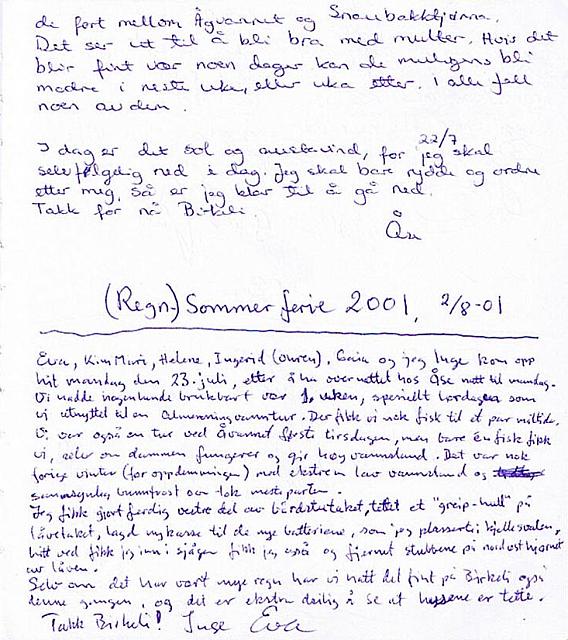 de fort mellom Ågvannet og Snaubakktjønna.
Det ser ut til å bli bra med multer. Hvis det
blir fint vær noen dager kan de muligens bli
modne i neste uke, eller uka etter. I alle fall
noen av dem.
I dag er det sol og austavind, for 22/7 jeg skal
selvfølgelig ned i dag. Jeg skal bare rydde og ordne
etter meg, så er jeg klar til å gå ned.
Takk for nå Birkeli.
Åse
(Regn-) Sommerferie 2001, 2/8-01
Eva, Kim Mari, Helene, Ingerid (Øuren), Gaia og jeg Inge kom opp
hit mandag den 23. juli, etter å ha overnattet hos Åse natt til mandag.
Vi hadde nogenlunde brukbart vær 1. uken, spesielt lørdagen som
vi utnyttet til en Almenningvanntur. Der fikk vi nok fisk til et par måltider.
Vi var også en tur ved Åvannet første tirsdagen, men bare én fisk fikk
vi, selv om dammen fungerer og gir høy vannstand. Det var nok
forige vinter (før oppdemmingen) med ekstrem lav vannstand og
sannsynlig bunnfrost som tok mesteparten.
Jeg fikk gjort ferdig vestre del av bårdstutaket, tettet et "greip-hull" på
låvetaket, lagd ny kasse til de nye batteriene, som jeg plasserte i kjellerboden,
litt ved fikk jeg inn i sjågen fikk jeg også og fjernet stubbene på nordøst hjørnet
av låven.
Selv om det har vært mye regn har vi hatt det fint på Birkeli også
denne gangen, og det er ekstra deilig å se at husene er tette.
Takk Birkeli! Inge Eva